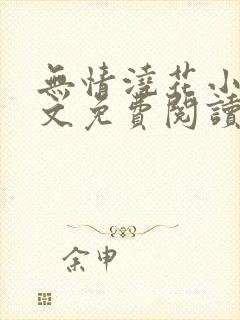 無情澆花小
文免費閱讀
余申